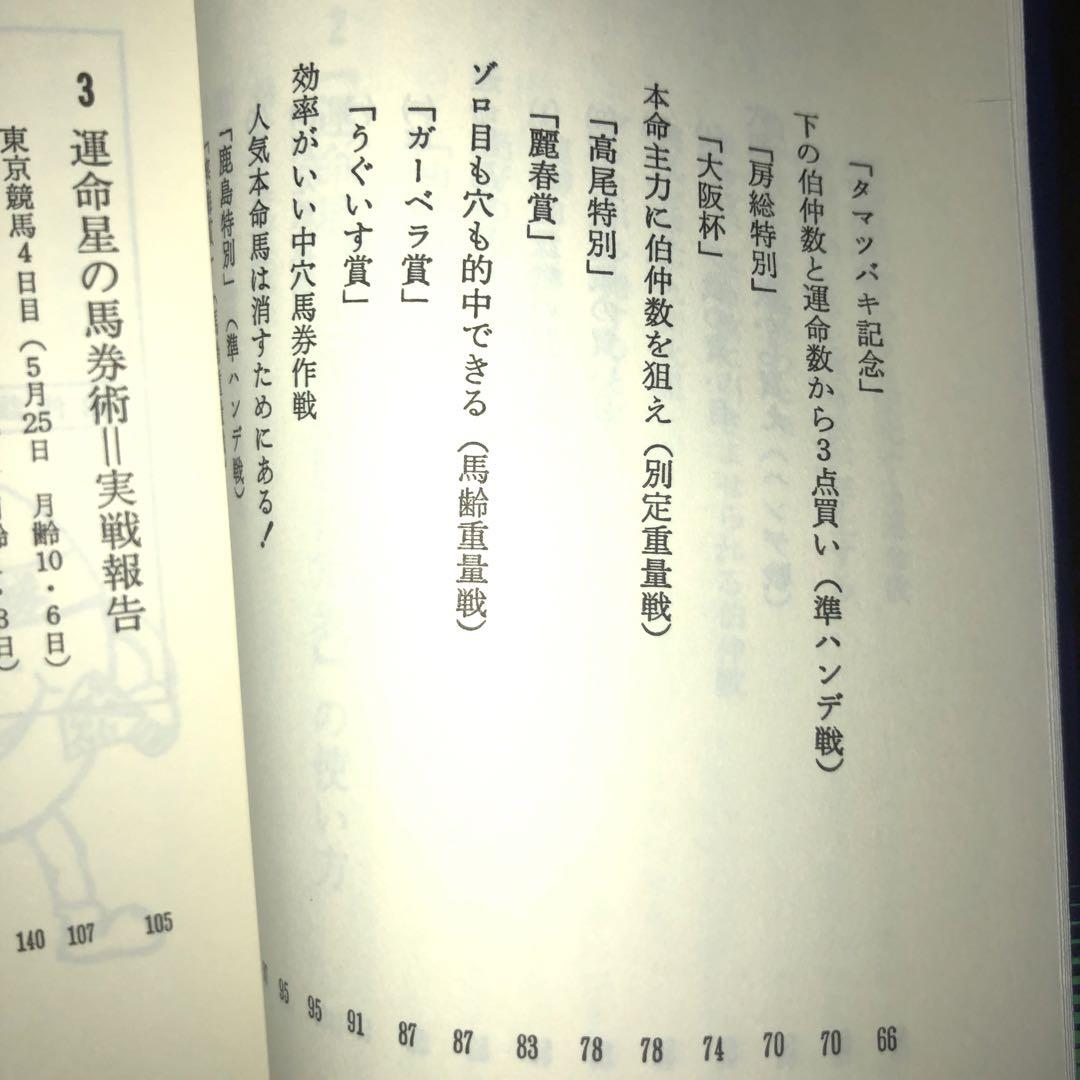 「タマツバキ記念」 66
下の伯仲数と運命数から3点買い（準ハンデ戦） 70
「房総特別」 70
「大阪杯」 74
本命主力に伯仲数を狙え（別定重量戦） 78
「高尾特別」 78
「麗春賞」 83
ゾロ目も穴も的中できる（馬齢重量戦） 87
「ガーベラ賞」 87
「うぐいす賞」 91
効率がいい中穴馬券作戦 95
人気本命馬は消すためにある！ 95
「鹿島特別」（準ハンデ戦）
3 運命星の馬券術＝実戦報告 105
東京競馬4日目（5月25日 月齢10・6日） 107
140